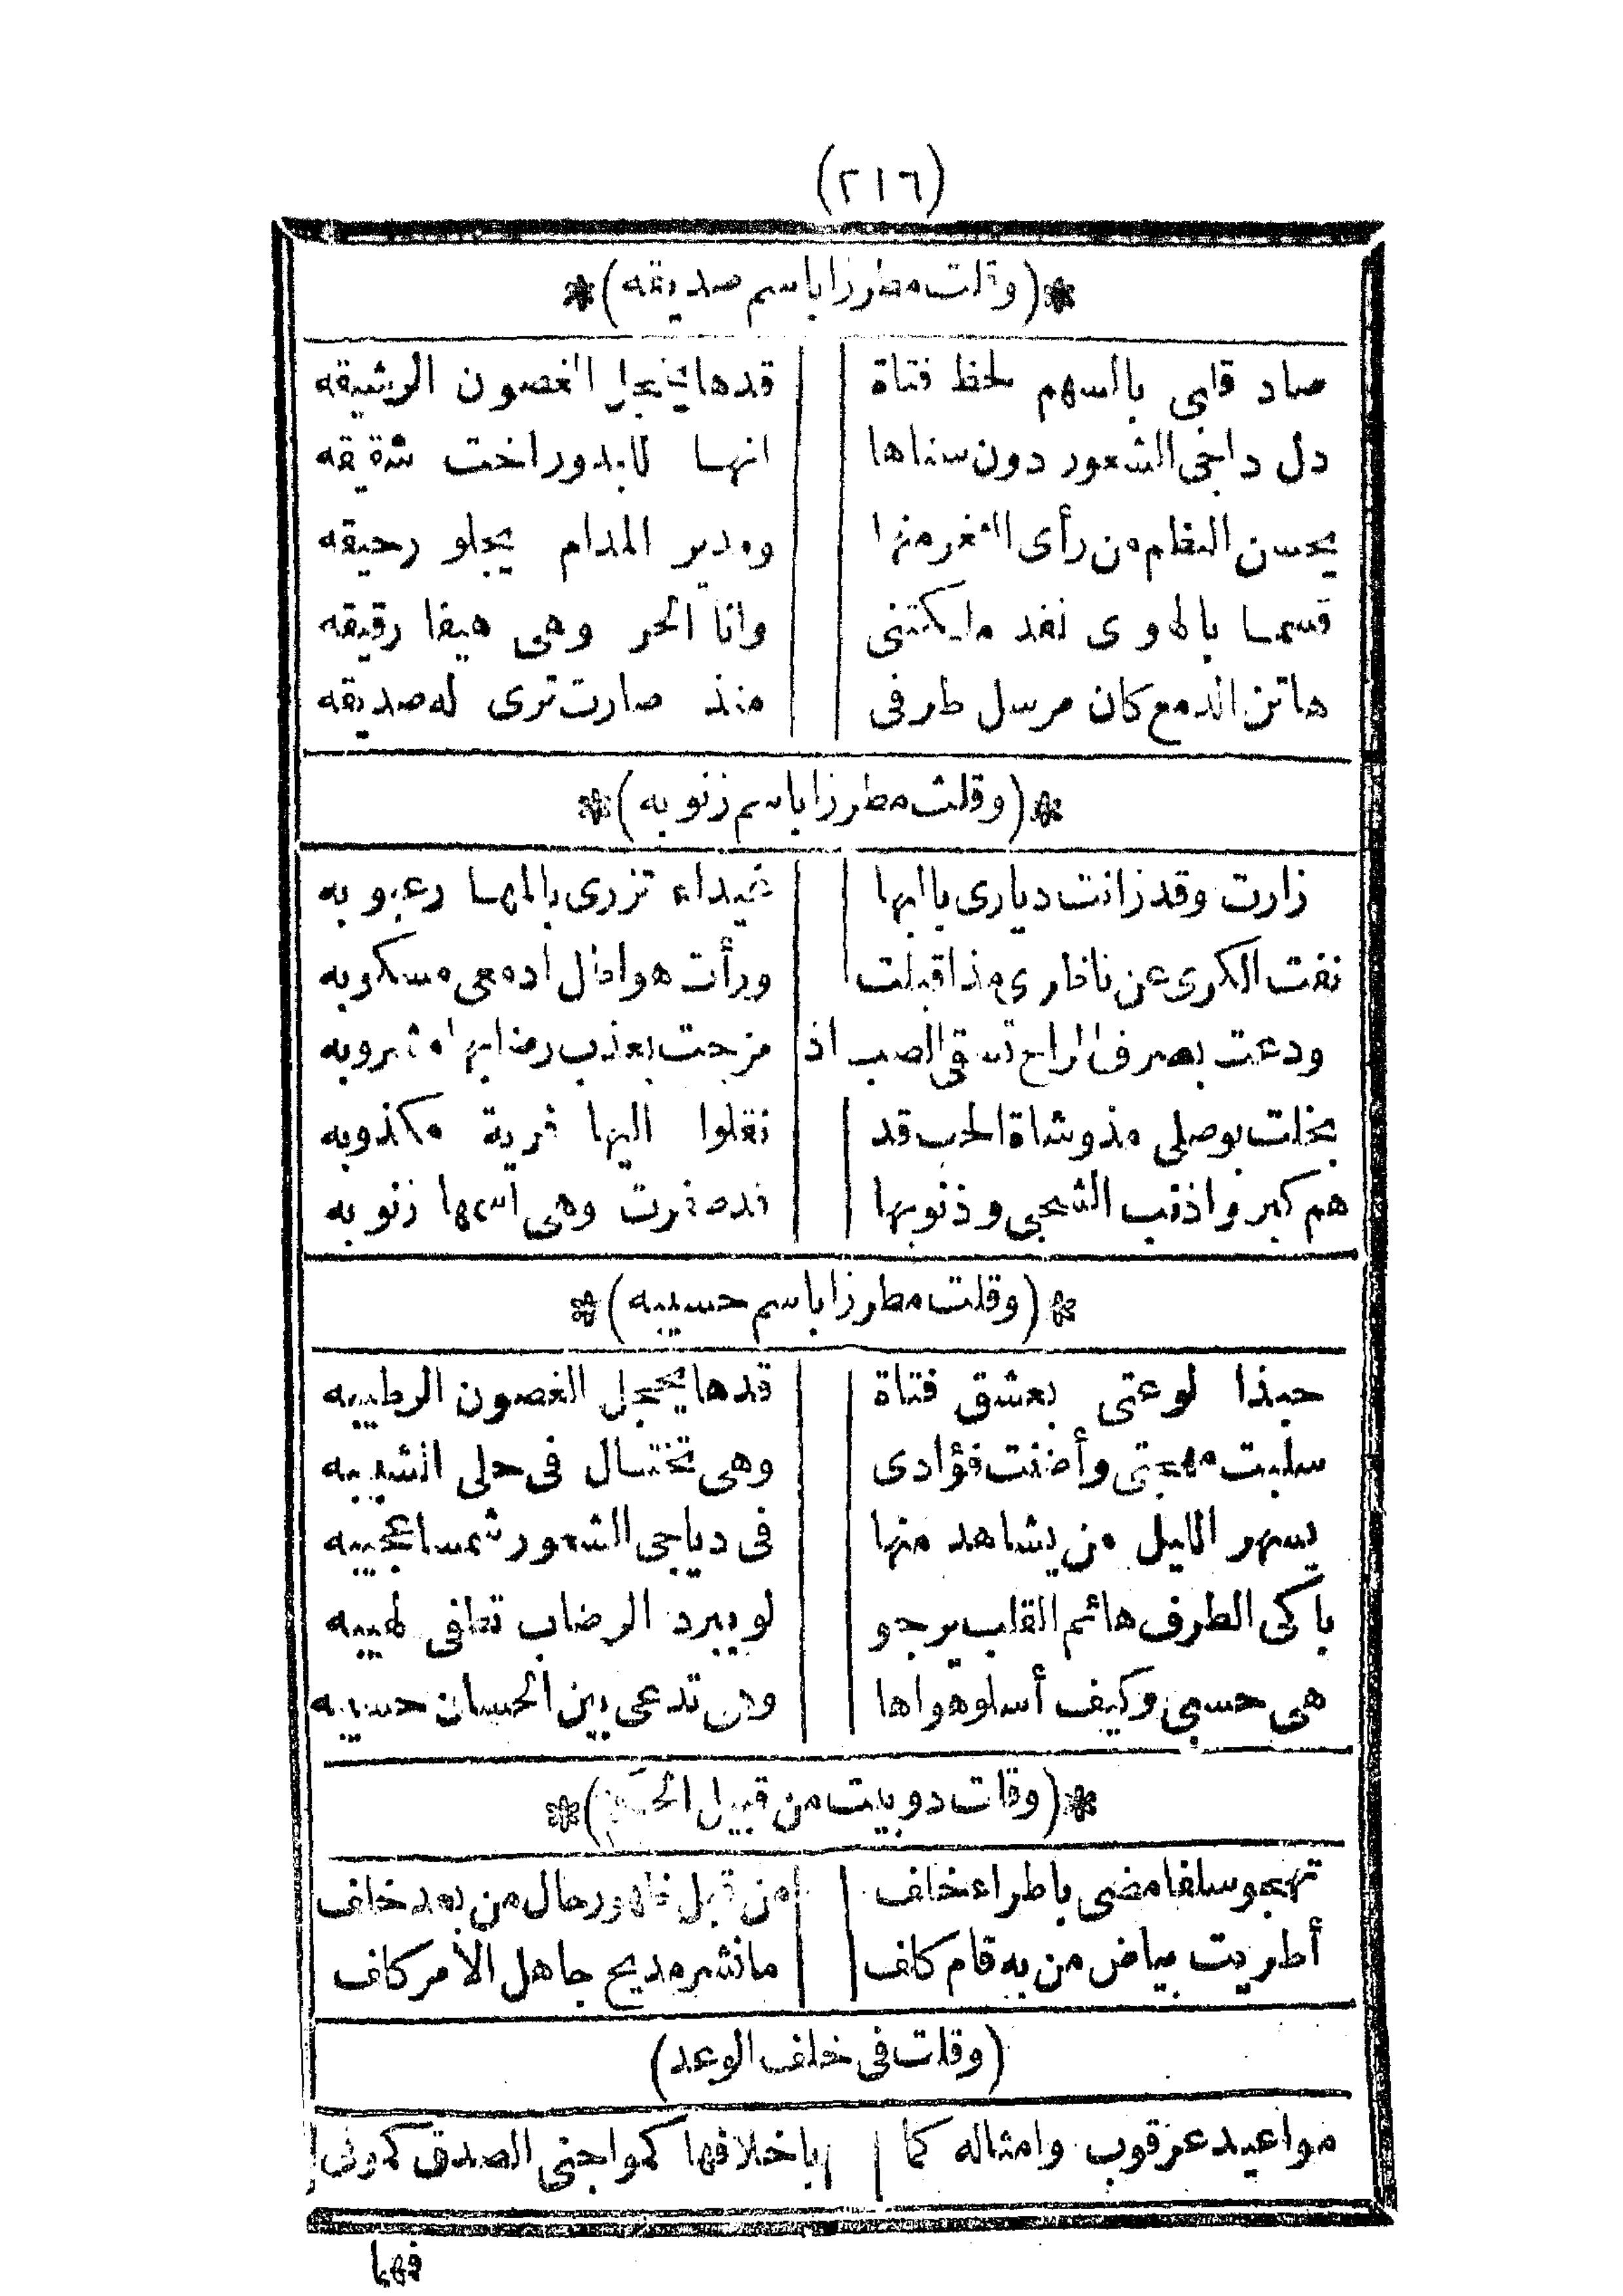 (٢١٦)
*(وقلت مطرزا باسم صديقه)*
صاد قلبى بالسهم لحظ فتاة قدها يخجل الغصون الرشيقه
دل داجى الشعور دون سناها انها للبدور اخت شقيقه
يحسن النظام من رأى الثغر منها ومدير المدام يجلو رحيقه
قسما بالهوى لقد ملكتنى وانا الحر وهى هيفا رقيقه
هاتن الدمع كان مرسل طرفى منذ صارت ترى له صديقه
*(وقلت مطرزا باسم زنوبه)*
زارت وقد زانت ديارى بالبها غيداء تزرى بالمها رعبوبه
نفت الكرى عن ناظرى مذ اقبلت ورأت هواطل ادمعى مسكوبه
ودعت بصرف الراح تسقى الصب اذ مزجت بعذب رضابها مشروبه
بخلت بوصلى مذ وشاة الحب قد نقلوا اليها فرية مكذوبه
هم كبروا ذنب الشجى وذنوبها قد صغرت وهى اسمها زنوبه
*(وقلت مطرزا باسم حسيبه)*
حبذا لوعتى بعشق فتاة قدها يخجل الغصون الرطيبه
سلبت مهجتى وأضنت فؤادى وهى تختال فى حلى الشبيبه
يسهر الليل من يشاهد منها فى دياجى الشعور شمسا عجيبه
باكى الطرف هائم القلب يرجو لو ببرد الرضاب تطفى لهيبه
هى حسبى وكيف أسلو هواها ومن تدعى بين الحسان حسيبه
*(وقلت دوبيت من قبيل)*
تهجو سلفا مضى باطراء خلف من قبل ظهور حال من بعد خلف
أطريت بياض من به قام كلف ما نشر مديح جاهل الامر كلف
(وقلت فى خلف الوعد)
مواعيد عرقوب وامثاله كما باخلافها كمواجنى الصدق كمونى
فهنا